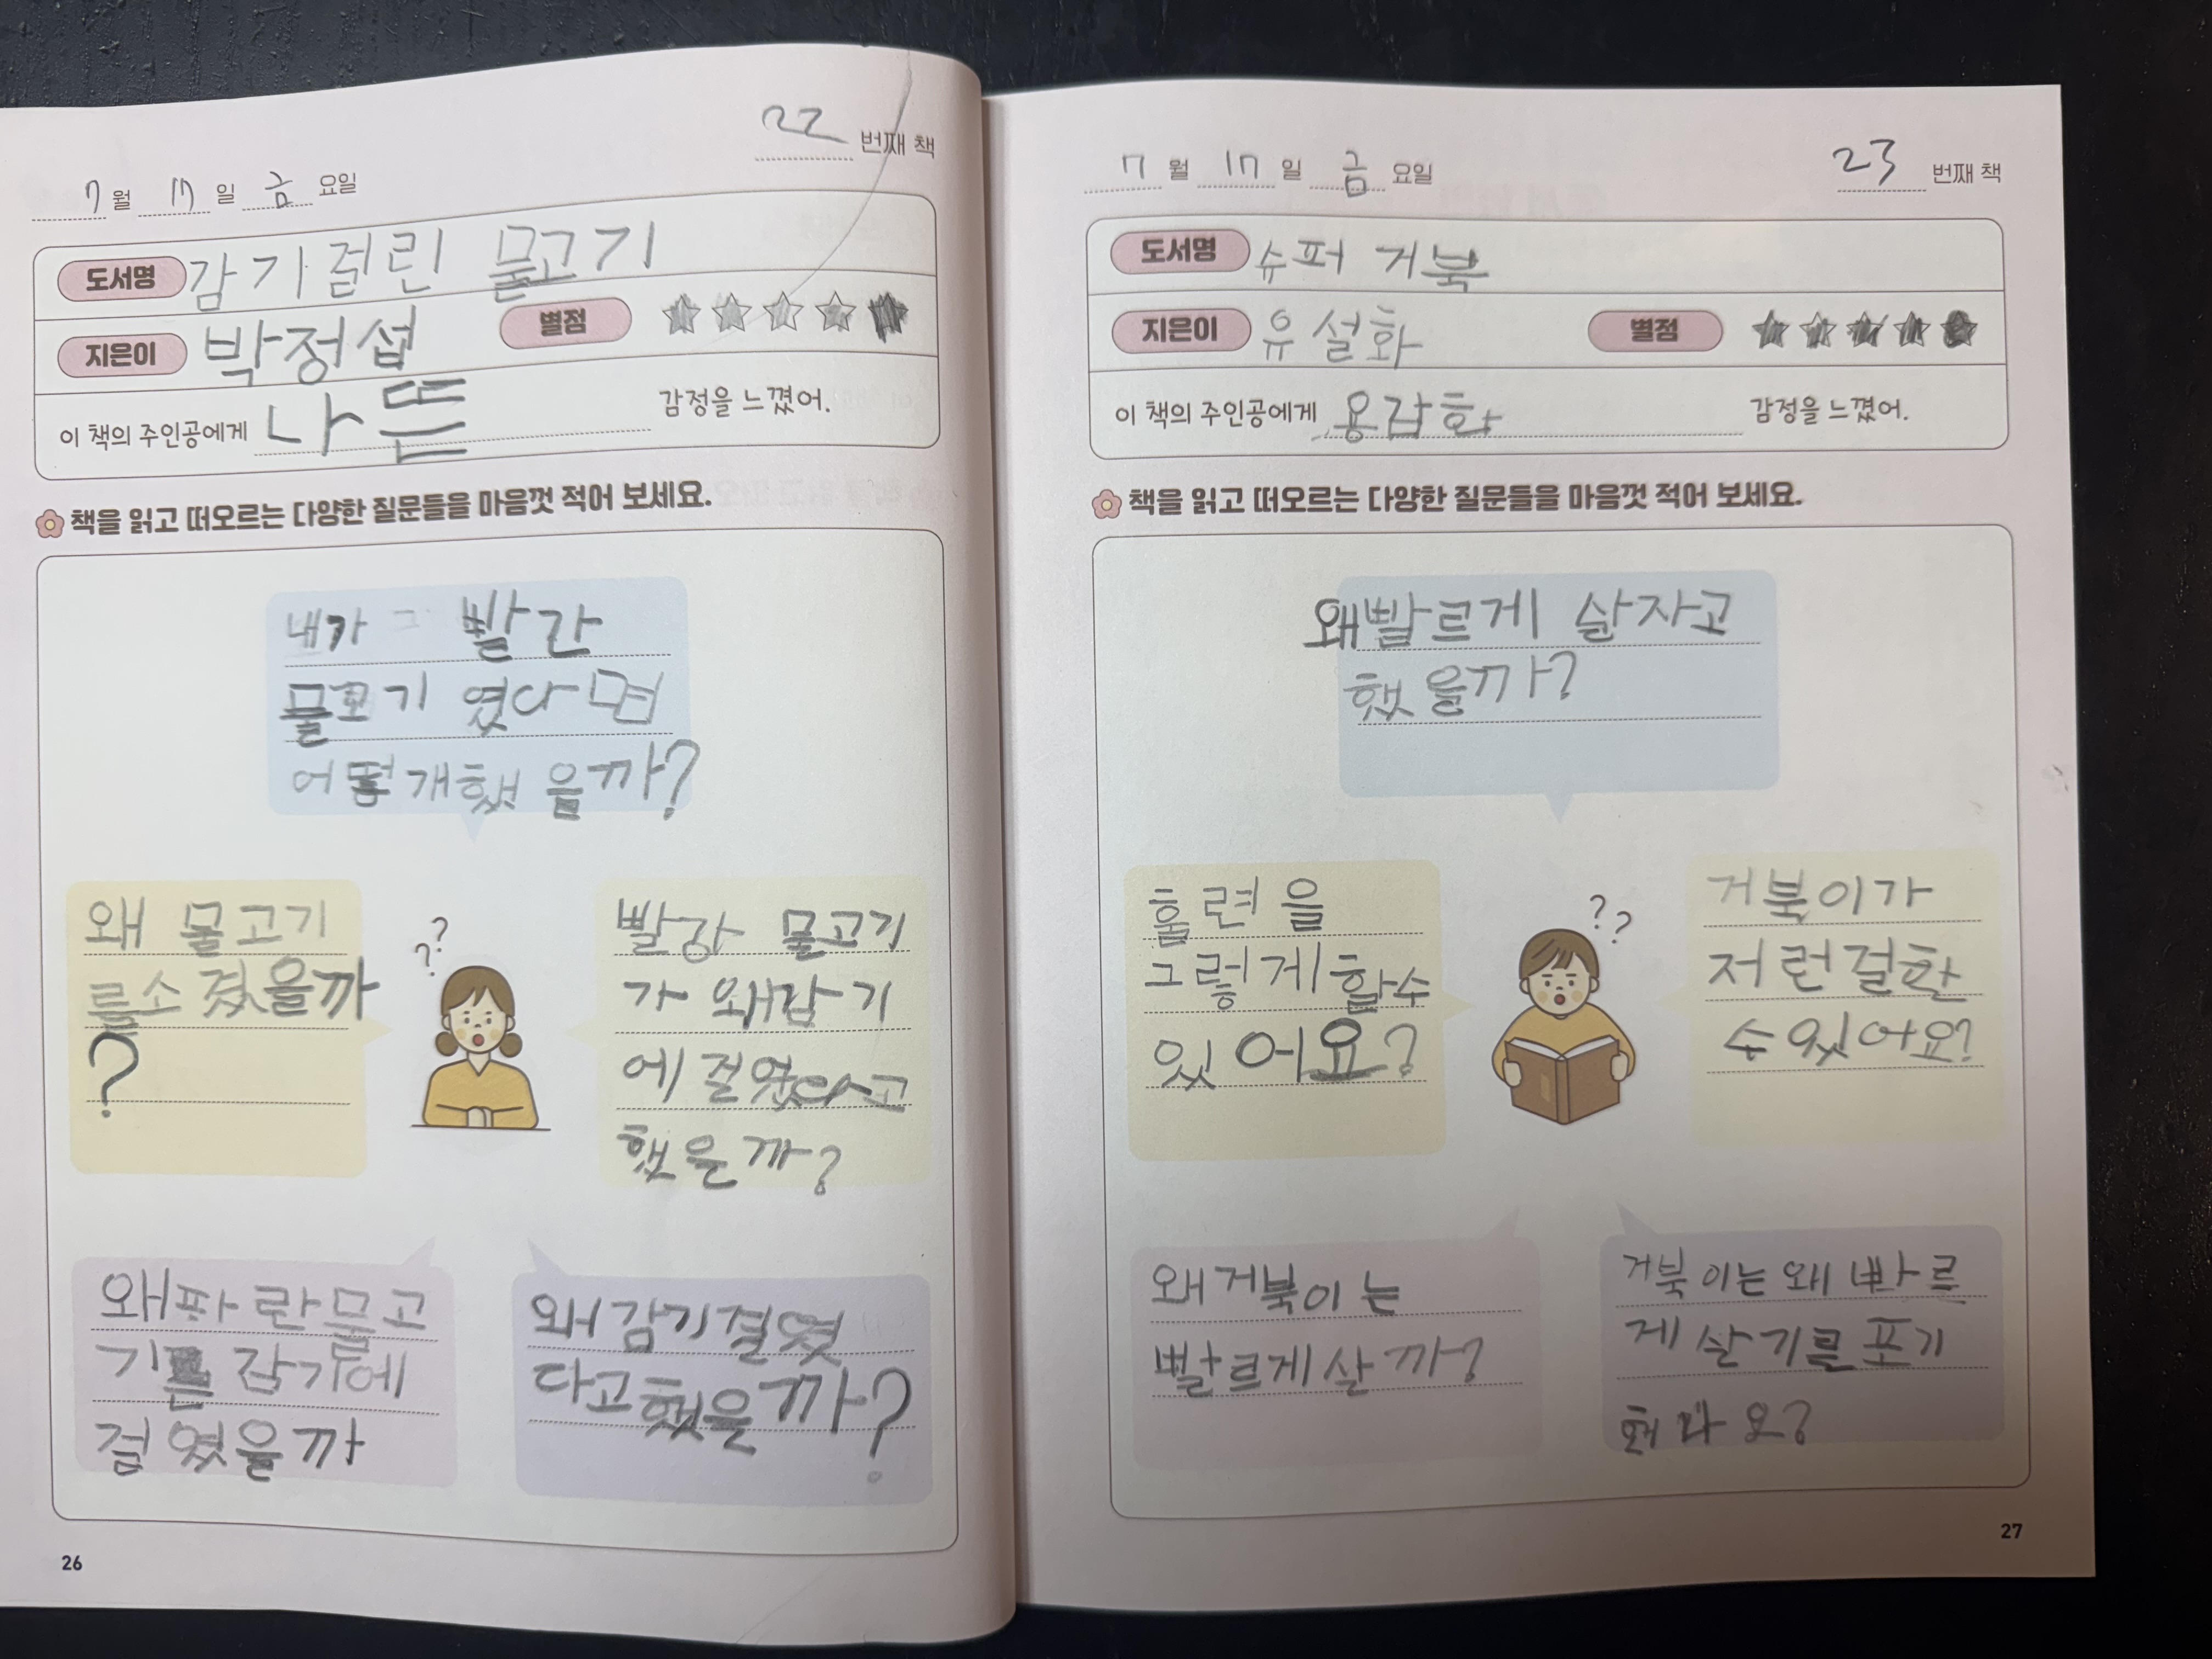 22 번째 책
7 월 17 일 금 요일
도서명 감기걸린 물고기
지은이 박정섭 별점
이 책의 주인공에게 나뜬 감정을 느꼈어.
책을 읽고 떠오르는 다양한 질문들을 마음껏 적어 보세요.
내가 빨간
물꼬기 였다면
어떻개했 을까?
왜 물고기
를소겼을까
?
??
빨강 물고기
가 왜감기
에 걸였다고
했을까?
왜파란물고
기는 감기에
걸였을까
왜감기걸였
다고했을까?
26
7 월 17 일 금 요일
23 번째 책
도서명 슈퍼 거북
지은이 유설화 별점
이 책의 주인공에게 용감화 감정을 느꼈어.
책을 읽고 떠오르는 다양한 질문들을 마음껏 적어 보세요.
왜빨르게 살자고
했을까?
훔련을
그렇게할수
있어요?
??
거북이가
저런걸할
수있어요?
왜거북이는
빨르게살까?
거북이는왜빠르
게살기를포기
해나요?
27